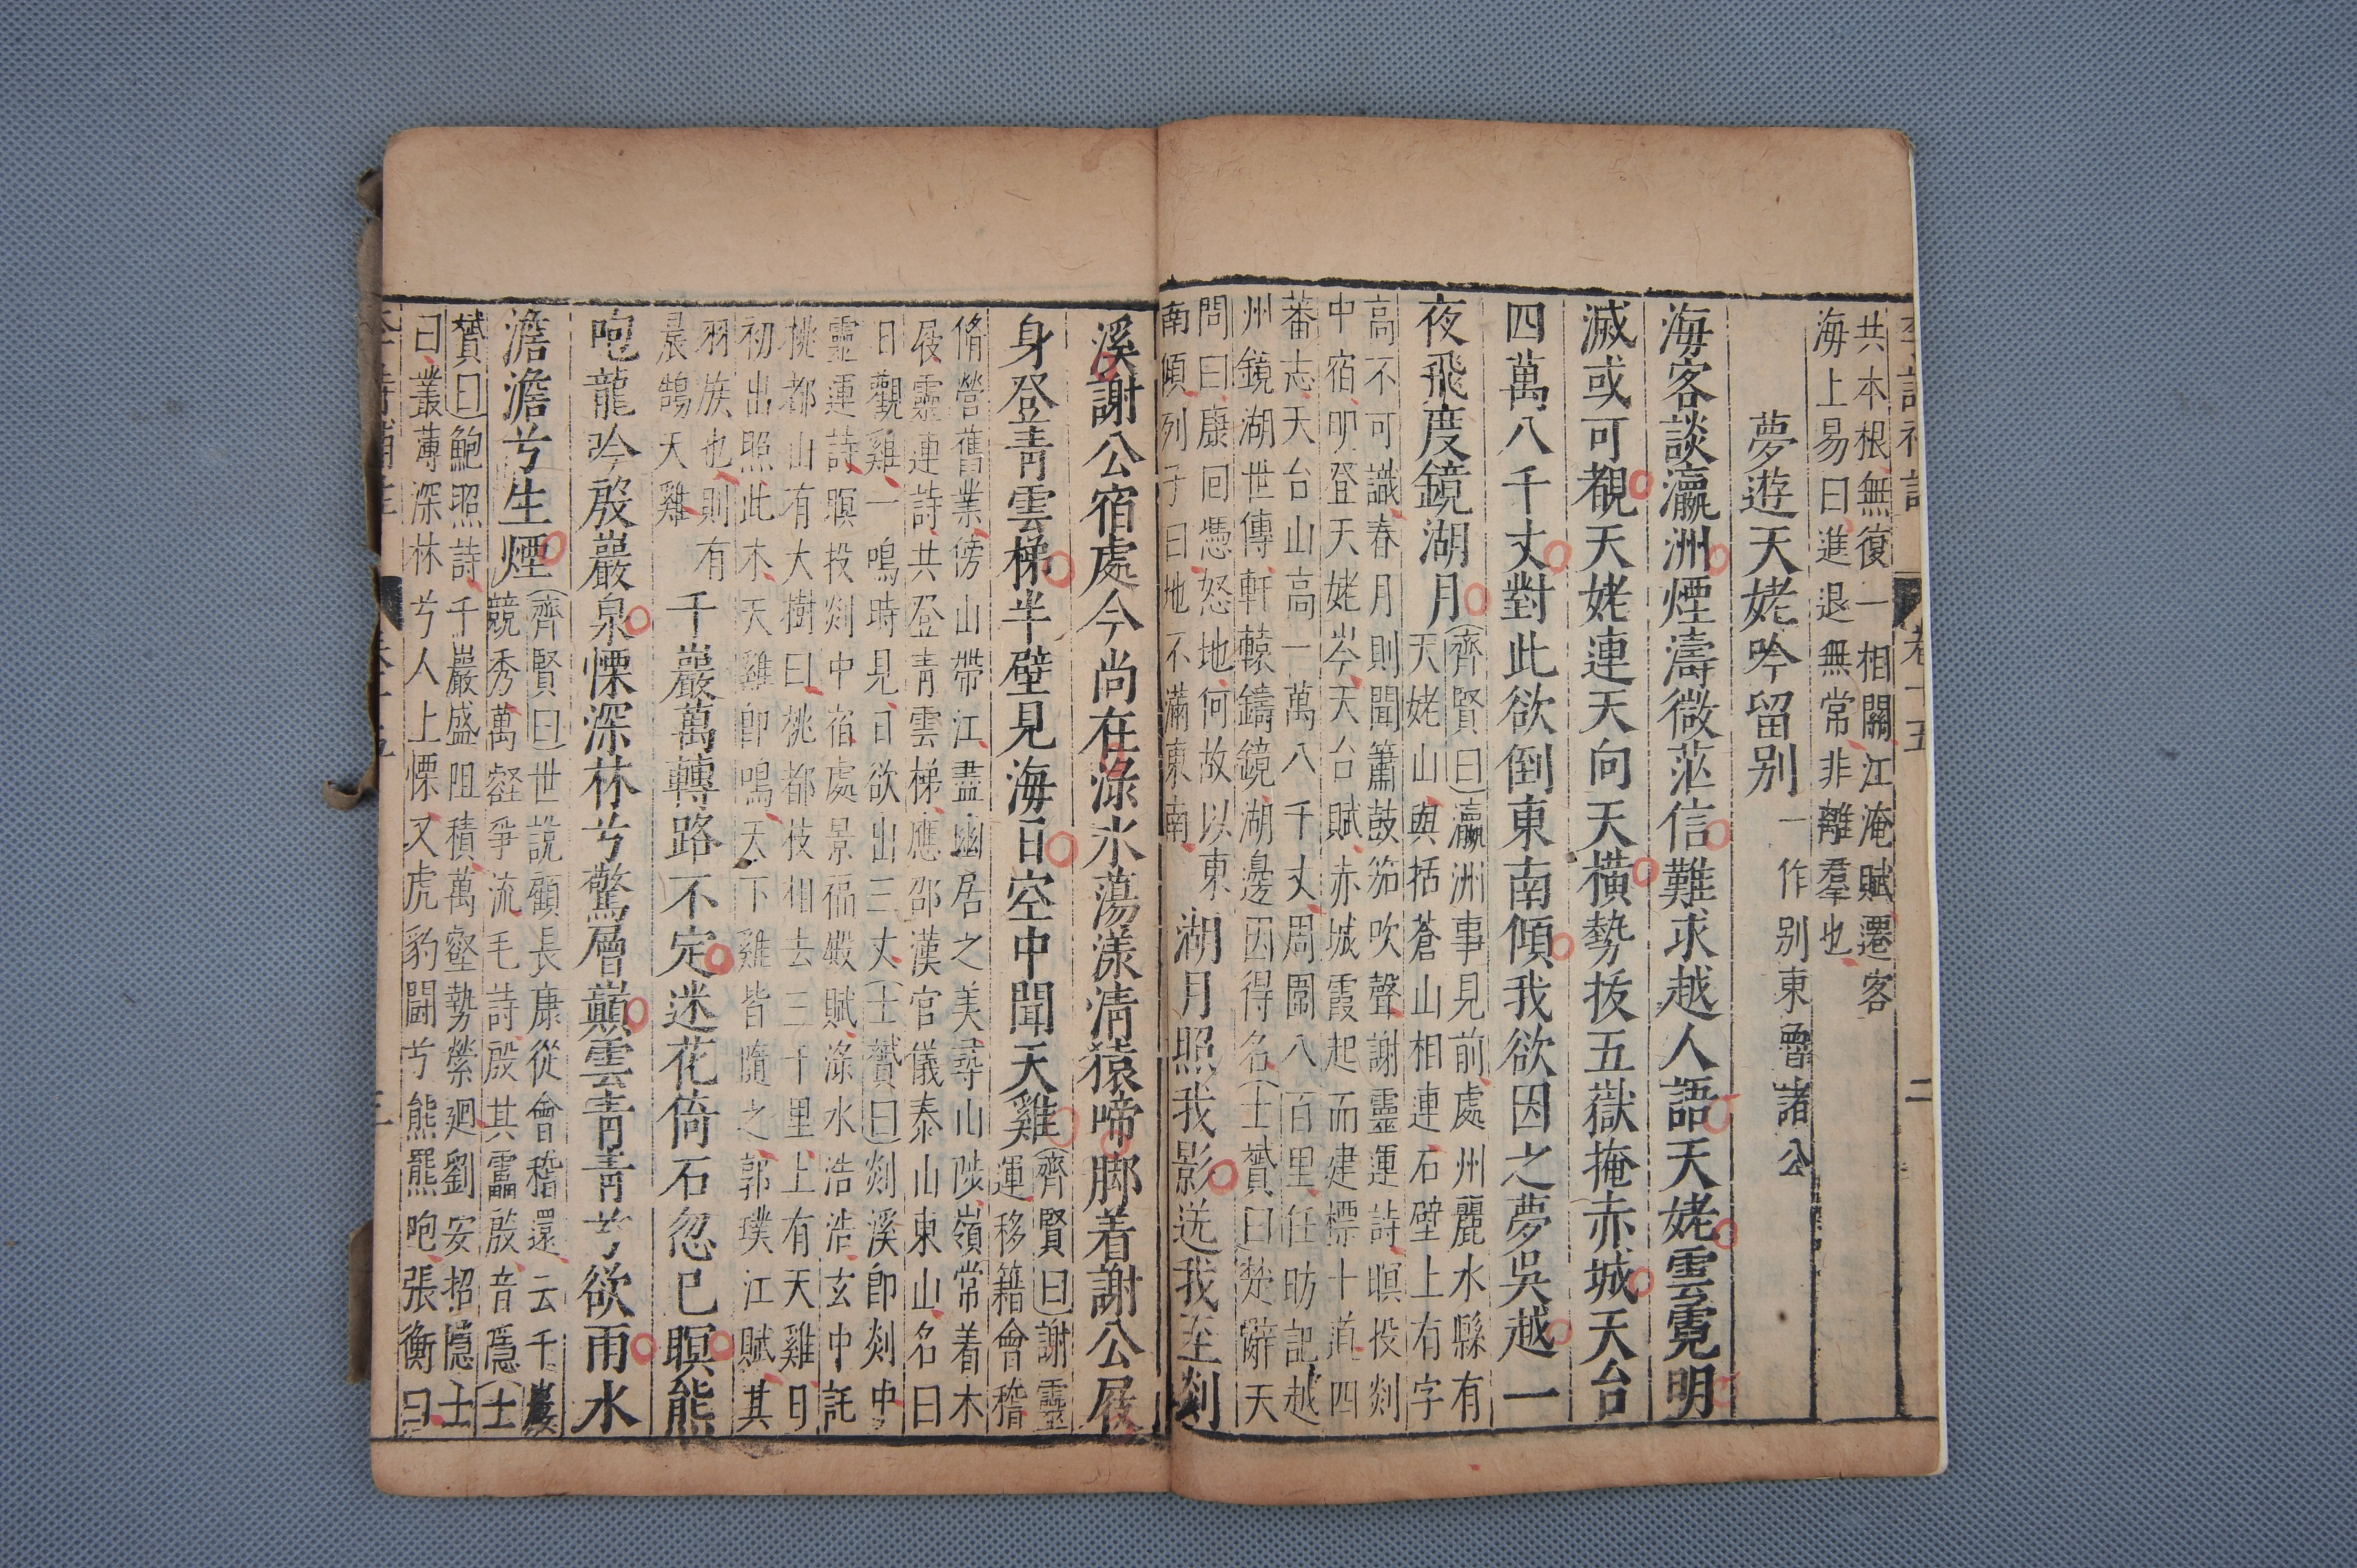 李詩補註
卷十五
二
共本根無復一相關江淹賦遷客
海上易曰進退無常非離羣也
夢遊天姥吟留别一作别東魯諸公
海客談瀛洲煙濤微茫信難求越人語天姥雲霓明
滅或可覩天姥連天向天橫勢拔五嶽掩赤城天台
四萬八千丈對此欲倒東南傾我欲因之夢吳越一
夜飛度鏡湖月
齊賢曰瀛洲事見前處州麗水縣有
天姥山與括蒼山相連石壁上有字
高不可識春月則聞簫鼓笳吹聲謝靈運詩暝投剡
中宿明登天姥岑天台賦赤城霞起而建標十道四
蕃志天台山高一萬八千丈周圍八百里任昉記越
州鏡湖世傳軒轅鑄鏡湖邊因得名士贇曰楚辭天
問曰康回憑怒地何故以東
南傾列子曰地不滿東南
湖月照我影送我至剡
溪謝公宿處今尚在淥水蕩漾清猿啼脚着謝公屐
身登青雲梯半壁見海日空中聞天雞
齊賢曰謝靈
運移籍會稽
脩營舊業傍山帶江盡幽居之美尋山陟嶺常着木
屐靈運詩共登青雲梯應邵漢官儀泰山東山名曰
日觀雞一鳴時見日欲出三丈士贇曰剡溪卽剡中
靈運詩暝投剡中宿處景福殿賦淥水浩浩玄中記
桃都山有大樹曰桃都枝相去三千里上有天雞日
初出照此木天雞卽鳴天下雞皆隨之郭璞江賦其
羽族也則有
晨鵠天雞
千巖萬轉路不定迷花倚石忽已暝熊
咆龍吟殷巖泉慄深林兮驚層巔雲青青兮欲雨水
澹澹兮生煙
齊賢曰世說顧長康從會稽還云千巖
競秀萬壑爭流毛詩殷其靁殷音隱士
贇曰鮑照詩千巖盛阻積萬壑勢縈廻劉安招隱士
曰叢薄深林兮人上慄又虎豹鬪兮熊羆咆張衡曰